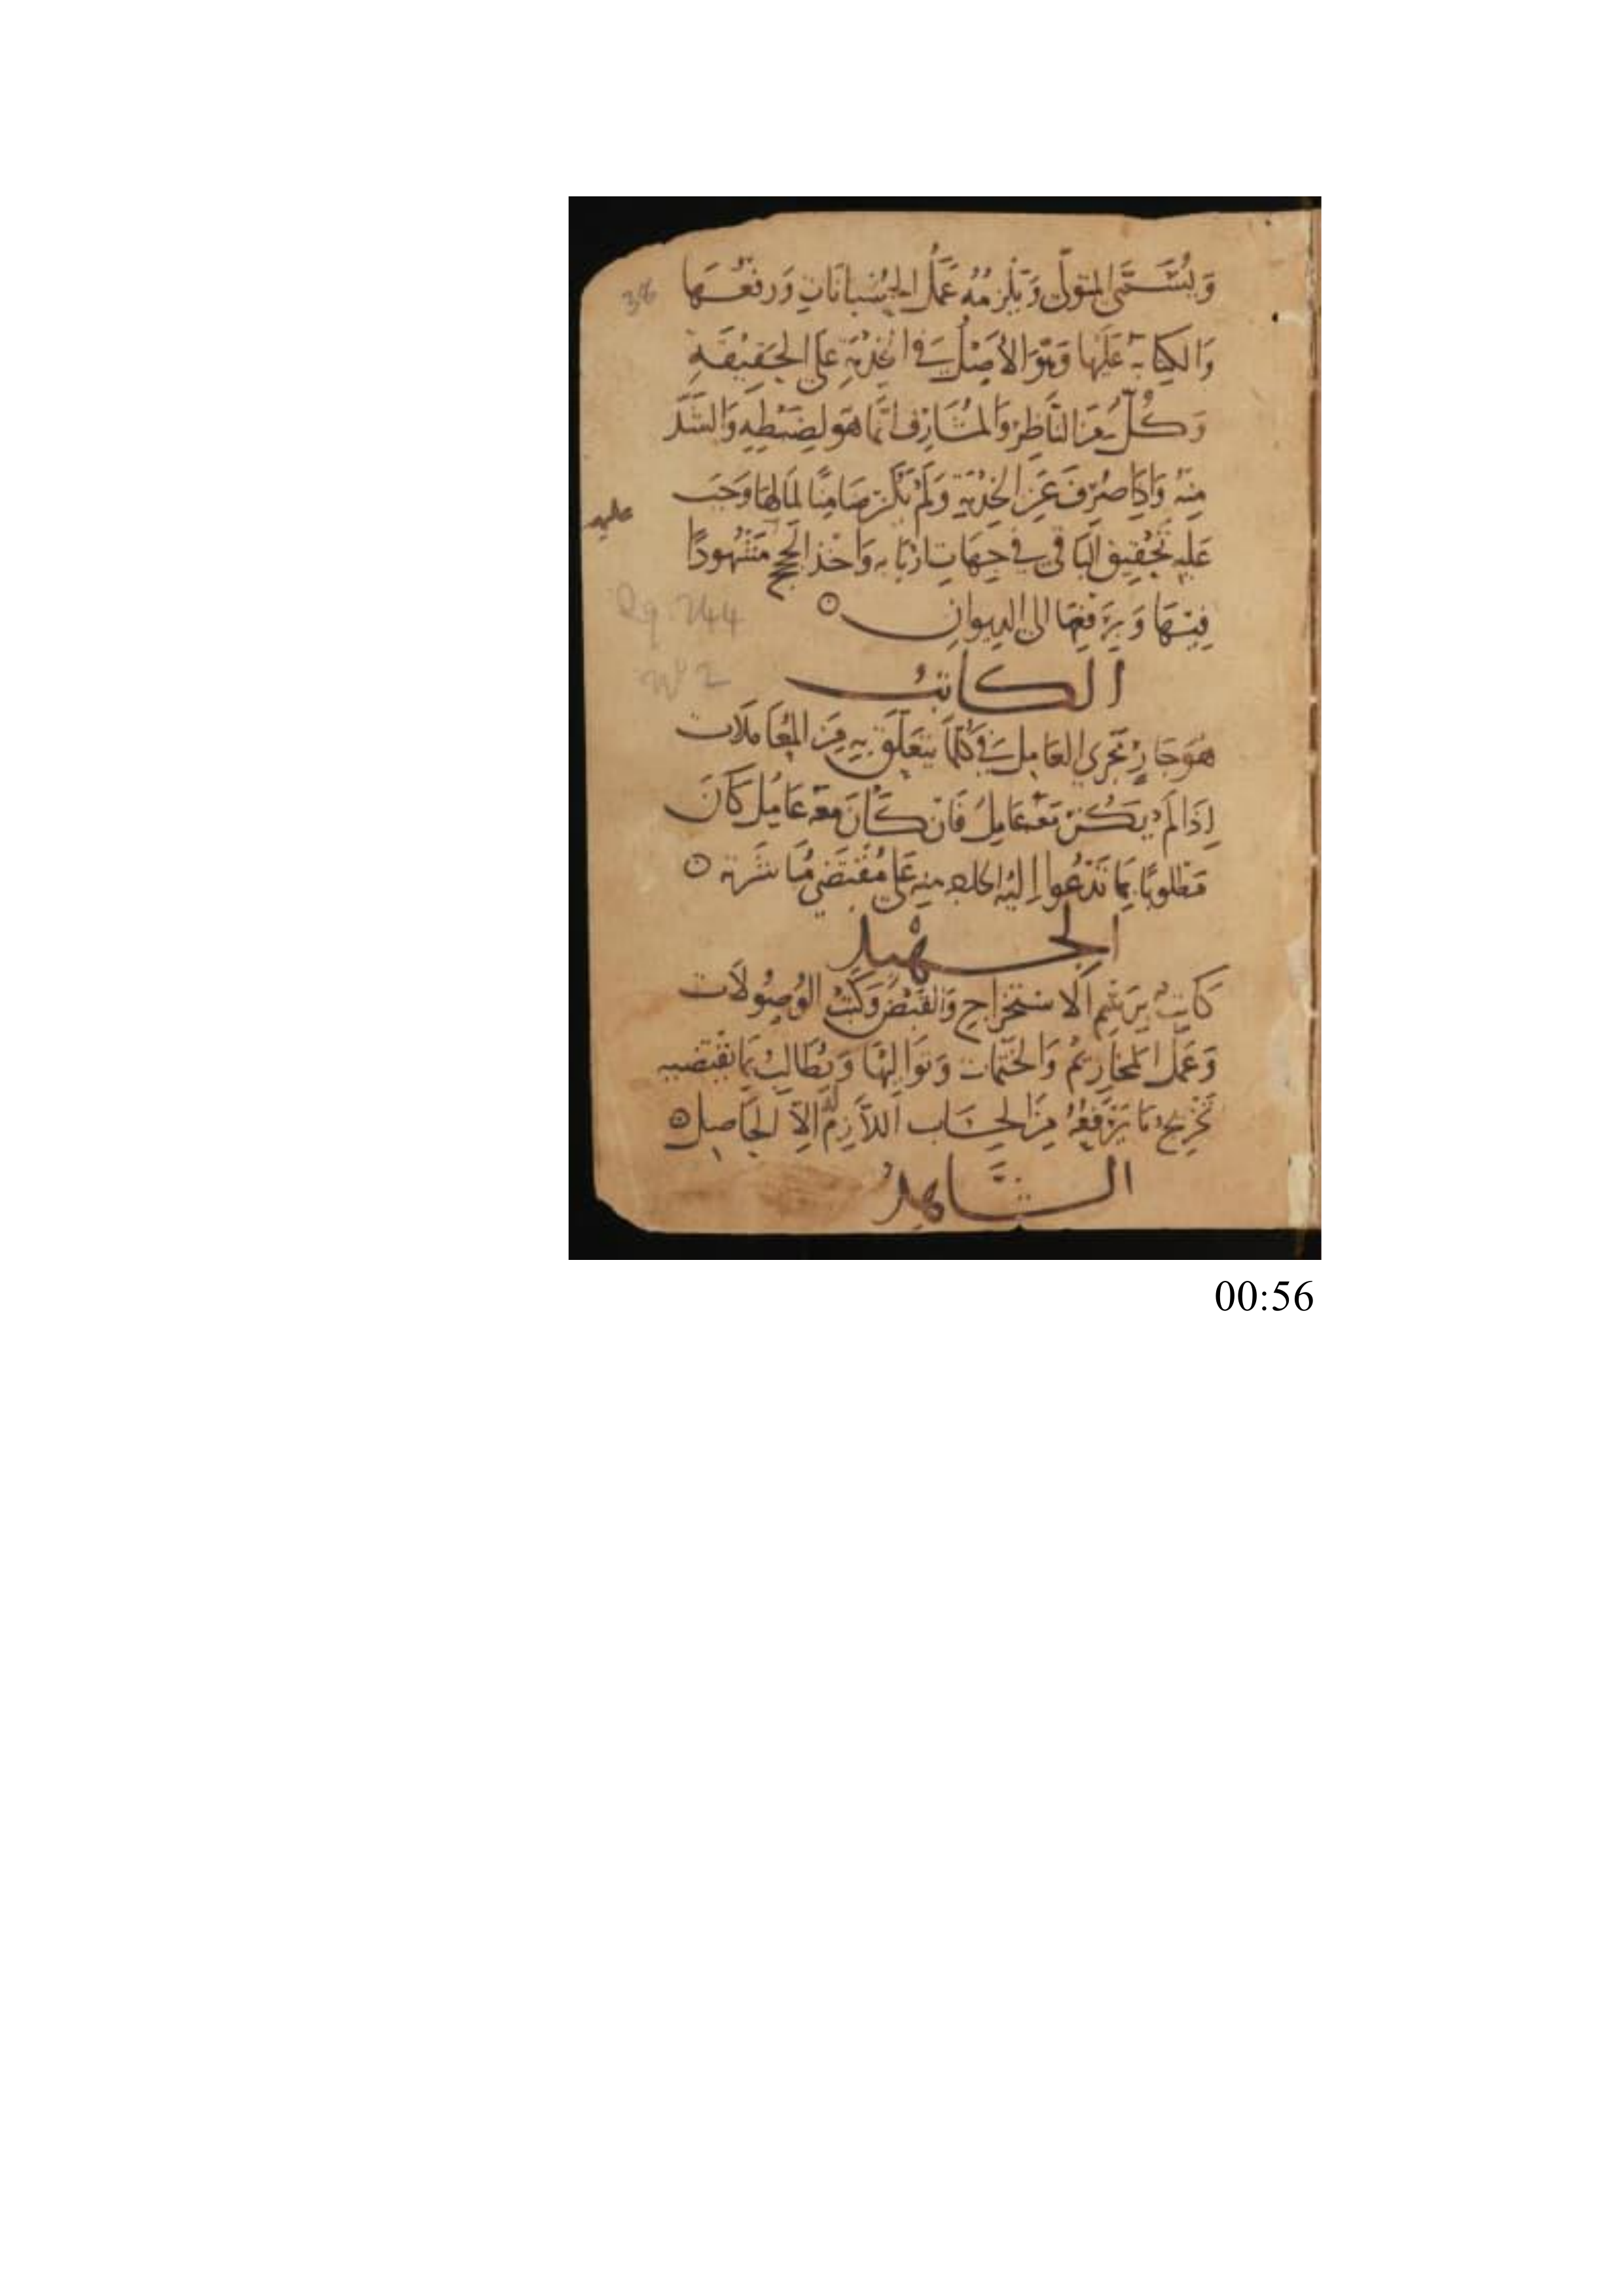 38
وَيُسَمَّى المتولّى وَيَلْزمُهُ عَمَلُ الحُسْبَانَاتِ وَرفْعُهَا
وَالكِتَابَةُ عَلَيْهَا وَهُوَ الأَصْلُ فى الخِدْمَةِ عَلَى الحَقِيْقَةِ
وَكُلٌّ مِنَ النَّاظِرِ وَالمُشَارِفِ انَّمَا هُوَ لِضَبْطِهِ وَالشَّدِّ
مِنْهُ وَاذِا صُرِفَ عَنِ الخِدْمَةِ وَلَمْ يَكُنْ ضَامِنًا لمَالِهَا وَجَبَ
عَلَيْهِ تَحْقِيقُ البَاقِى فِى جِهَاتِ ارْبَابِهِ وَاخْذُ الحُجَجِ مَشْهُودًا
فِيْهَا وَيَرْفَعُهَا الى الديوانِ
الكاتبُ
هُوَ جَارٍ مَجْرى العَامِلِ فِى كُلِّمَا يتَعَلَّق بِهِ مِنَ المُعَامَلَات
اِذَا لَمْ يَكُنْ مَعَهُ عَامِلٌ فَانْ كَانَ مَعَهُ عَامِلٌ كَانَ
مَطْلوبًا بِمَا تَدْعُوا اِلَيْهِ الحاجه مِنه عَلَى مُقْتَضَى مُبَاشَرته
الجهبذ
كَاتِبٌ بِرَسْمِ الاسْتخْرَاجِ وَالقَبْضِ وَكَتْبِ الوُصُولَات
وَعَمَلِ المخَازِيْمِ وَالخَتَمَات وَتوَالِيْهَا وَيُطَالَبُ بِمَا يَقْتَضِيه
تَخْرِيجُ مَا يَرْفَعُهُ مِنَ الحِسَاب اللَّازِمِ لَهُ الاّ الحَاصِل
الشَّاهِدُ
عليه
00:56